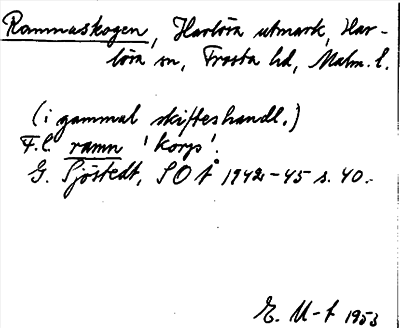 Ramnaskogen, Harlösa utmark, Har-
lösa sn, Frosta hd, Malm. l.
(i gammal skifteshandl.)
F.l. ramn 'korp'.
G. Sjöstedt, SOÅ 1942-45 s. 40.
E. U-t 1953